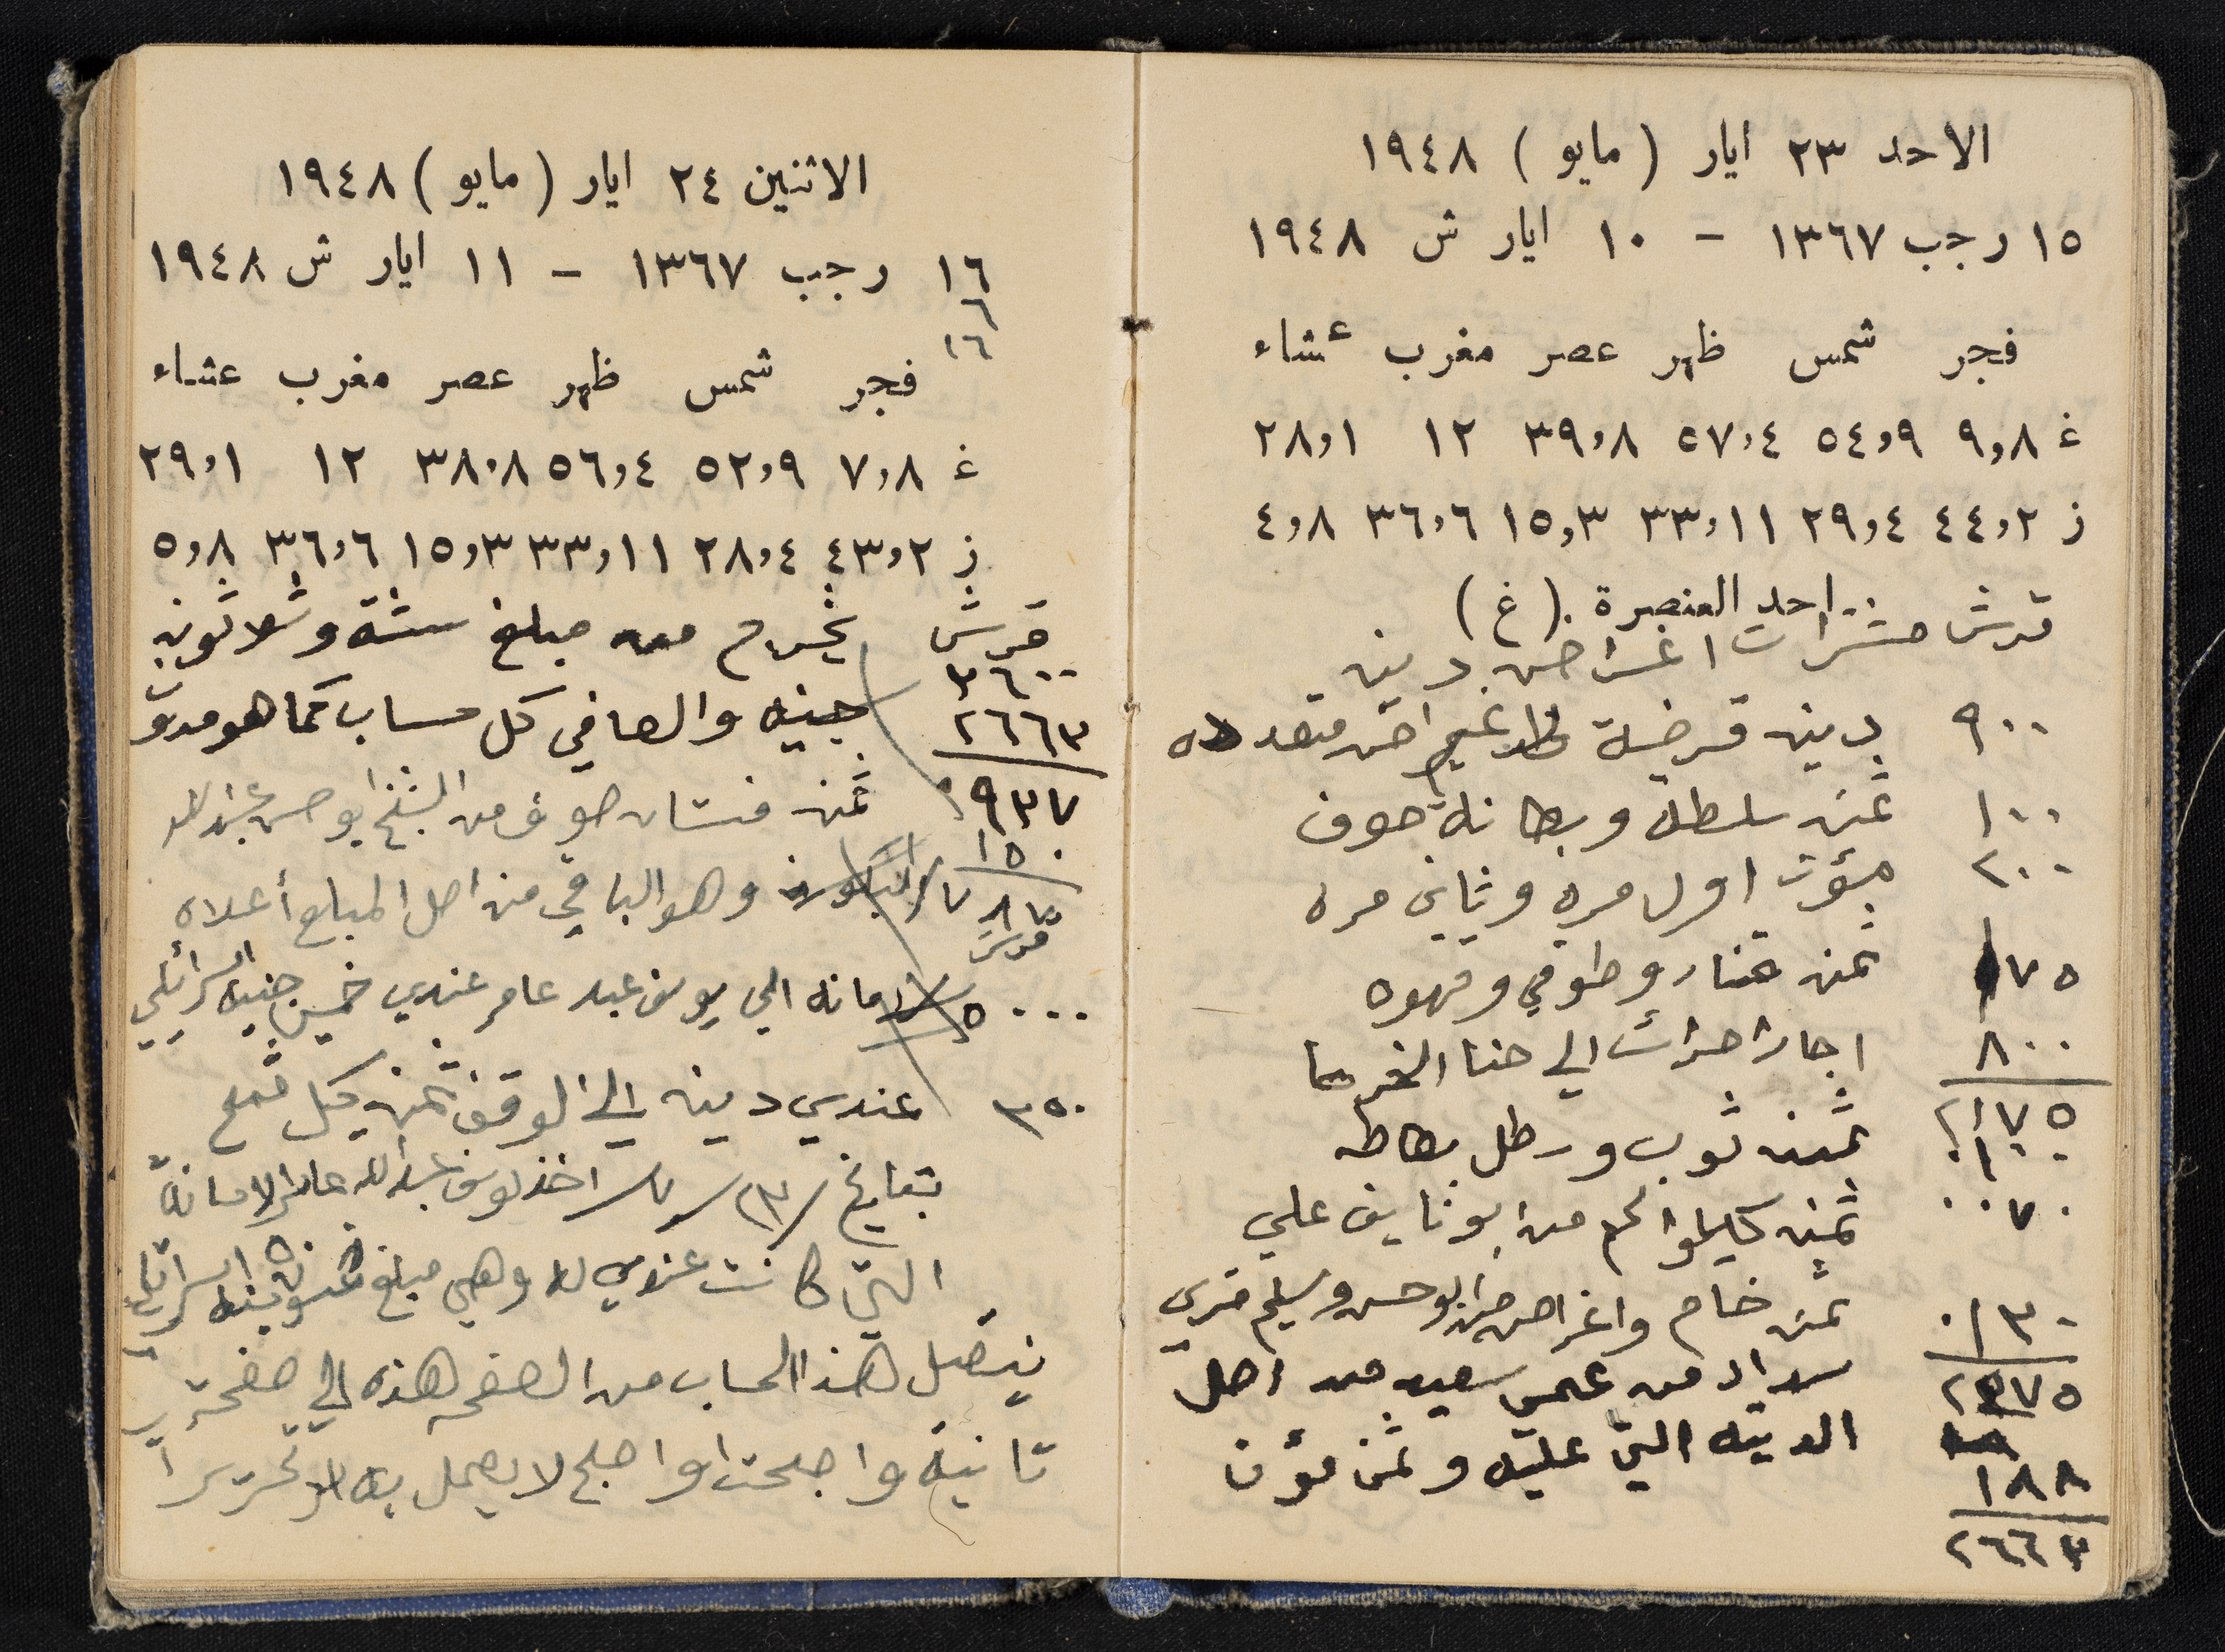 الاحد ٢٣ ايار (مايو) ١٩٤٨
١٥ رجب ١٣٦٧ - ١٠ ايار ش ١٩٤٨
فجر شمس ظهر عصر مغرب عشاء
غ ٩,٨ ٥٤,٩ ٥٧,٤ ٣٩,٨ ١٢ ٢٨,١
ز ٤٤,٢ ٢٩,٤ ٣٣,١١ ١٥,٣ ٣٦,٦ ٤,٨
احد العنصرة (غ)
قرش مشترات اغراض دين
٩٠٠ دين قرضة متعدده
١٠٠ ثمن سلطه وبطانة صوف
٢٠٠ مؤن اول مره وثاني مره
١٧٥ ثمن وقهوه
٨٠٠ اجار حراث الي حنا
٢١٧٥
١٠٠ ثمن ثوب ورطل بطاطه
٠٠٧٠ ثمن كيلو لحم من ابو نايف علي
٠١٣٠ ثمن خام واغراض من ابو حسن وسليم
٢٤٧٥ سداد من عمي سعيد من اصل
الدينه التي عليه وثمن مؤن
١٨٨
٢٦٦٣
الاثنين ٢٤ ايار (مايو) ١٩٤٨
١٦ رجب ١٣٦٧ - ١١ ايار ش ١٩٤٨
٦
١٦
فجر شمس ظهر عصر مغرب عشاء
غ ٧,٨ ٥٢,٩ ٥٦,٤ ٣٨,٨ ١٢ ٢٩,١
ز ٤٣,٢ ٢٨,٤ ٣٣,١١ ١٥,٣ ٣٦,٦ ٥,٨
قرش يخرم منه مبلغ ستة وثلاثون
٣٦٠٠
٢٦٦٣ جنيه والصافي كل حساب كما هو مدون
٠٩٣٧ ثمن فستان صوف من الشيخ ابو حسن عبدالله
١٥٠
٧٨٧ وهو الباقي من اصل المبلغ أعلاه
قرش
٥٠٠٠ امانه الي يوسف عبد عامر عندي خمسين جنيه اسرائيلي
٣٥٠ عندي دين الي الوقف ثمن كل قمح
بتاريخ ٢٣/٧ اخذ يوسف عبدالله عامر الامانة
التي كانت عندي له وهي مبلغ ٥٠ جنيه اسرائيلي
ينقل هذا الحساب من الصفحه هذه الي صفحة
ثانية واصلحت واصبح لا يعمل به تحريرا